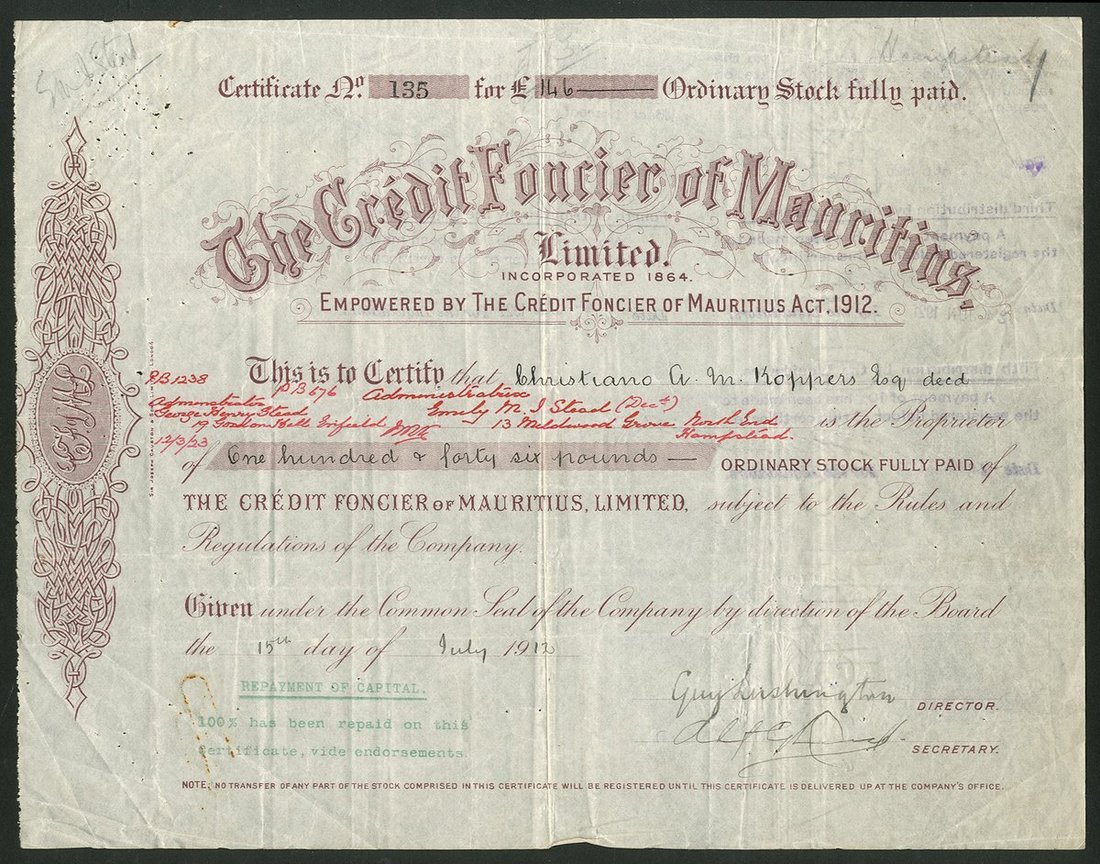 Certificate No. 135 for £ 146 Ordinary Stock fully paid.
The Crédit Foncier of Mauritius,
Limited.
INCORPORATED 1864.
EMPOWERED BY THE CRÉDIT FONCIER OF MAURITIUS ACT, 1912.
This is to Certify that Christiano A. M. Koppers Esq decd
P/B 1238 P/B 676 Administratrix
Administrator Emily M. J Stead (Decd)
George Henry Stead 13 Mildwood Grove North End
19 Enfield Hampstead. is the Proprietor
12/3/23
of One hundred & forty six pounds — ORDINARY STOCK FULLY PAID of
THE CRÉDIT FONCIER OF MAURITIUS, LIMITED, subject to the Rules and
Regulations of the Company.
Given under the Common Seal of the Company by direction of the Board
the 15th day of July 1912
REPAYMENT OF CAPITAL.
100% has been repaid on this
certificate, vide endorsements
Guy Lushington
DIRECTOR.
SECRETARY.
NOTE, NO TRANSFER OF ANY PART OF THE STOCK COMPRISED IN THIS CERTIFICATE WILL BE REGISTERED UNTIL THIS CERTIFICATE IS DELIVERED UP AT THE COMPANY'S OFFICE.